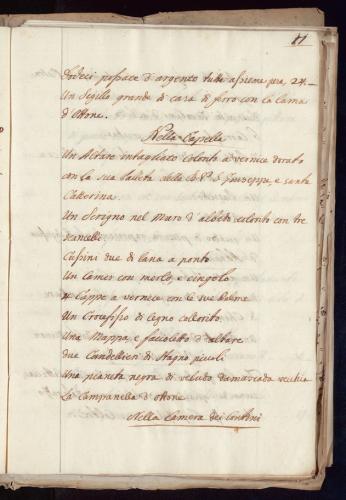 11
Dodeci possate d'argento tutte assieme pesa 24:—
Un Sigillo grande di casa di ferro con la lama
d'Ottone.
Nella Capella
Un Altare intagliato colorito a vernice dorato
con la sua Palletta della B.V. S. Giuseppe, e santa
Catterina.
Un Scrigno nel Muro d'albeo colorito con tre
Cancelli
Cussini due di lana a ponto
Un Camer con merlo, e cingolo
4 Cappe a vernice con le sue Palme
Un Crocefisso di legno colorito.
Una Mappa, e faccoletto d'altare
due Candellieri di stagno piccoli
Una pianeta negra di veluto damascada vecchia
La Campanella d'ottone
Nella Camera dei